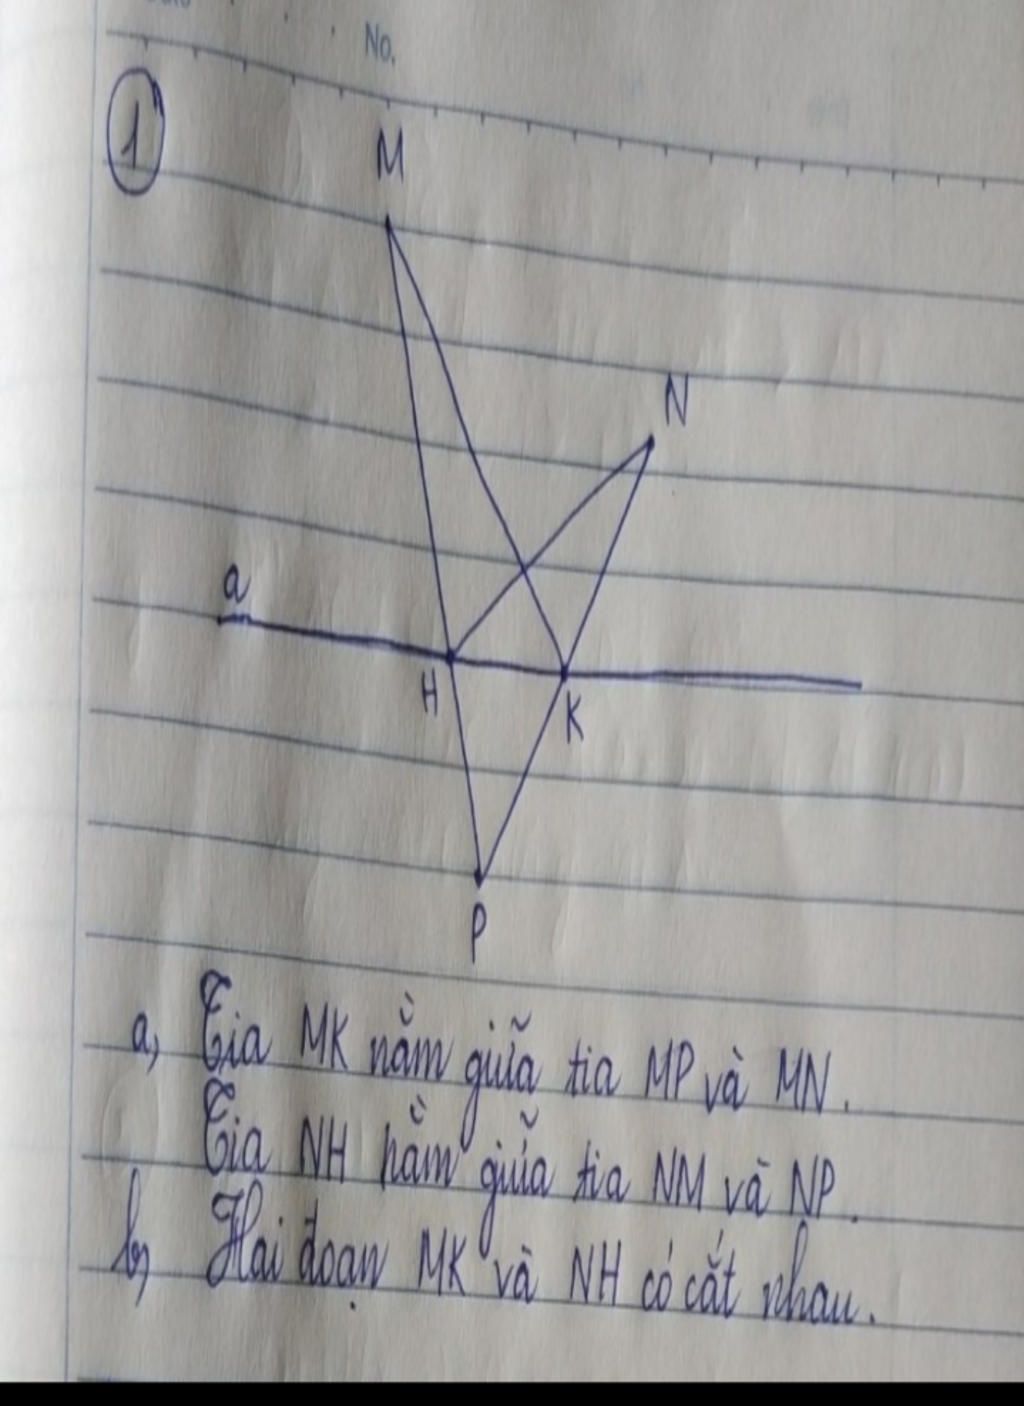 No.
1
M
N
a
H
K
P
a, Tia MK nằm giữa tia MP và MN.
Tia NH nằm giữa tia NM và NP.
b, Hai đoạn MK và NH có cắt nhau.